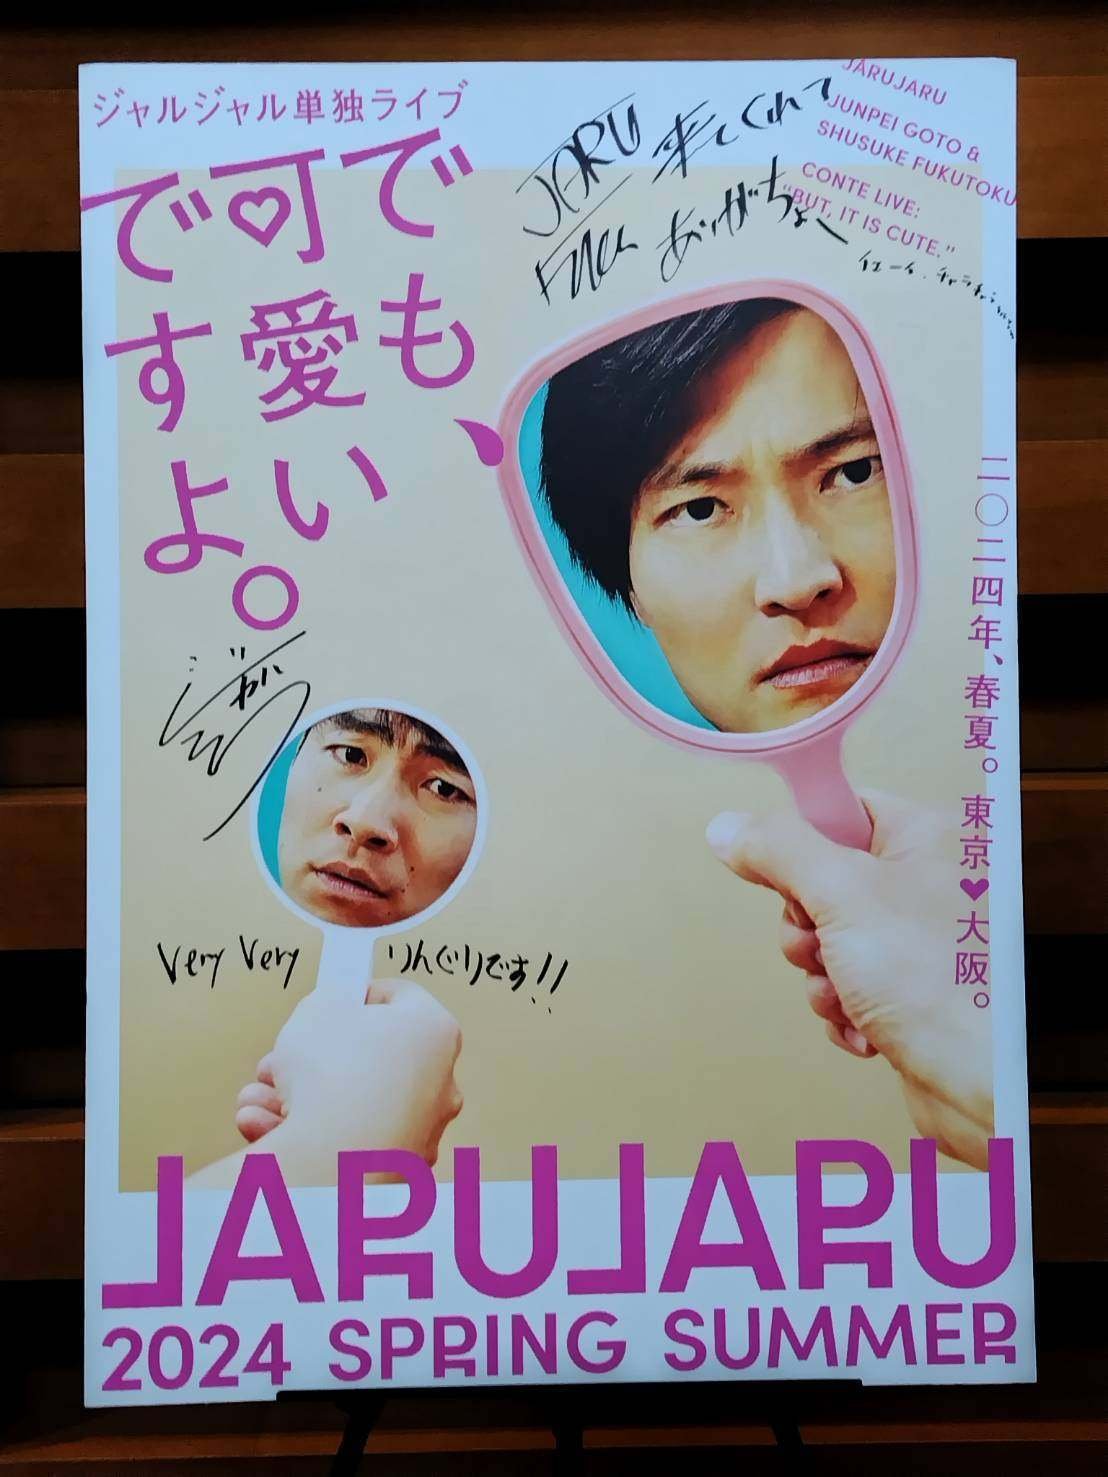 ジャルジャル単独ライブ
でも、
可愛い
ですよ。
JARUJARU
JUNPEI GOTO &
SHUSUKE FUKUTOKU
CONTE LIVE:
"BUT, IT IS CUTE."
JARU
来てくれて
ありがちょー
二〇二四年、春夏。東京♥大阪。
Very Very りんぐりです!!
JARUJARU
2024 SPRING SUMMER